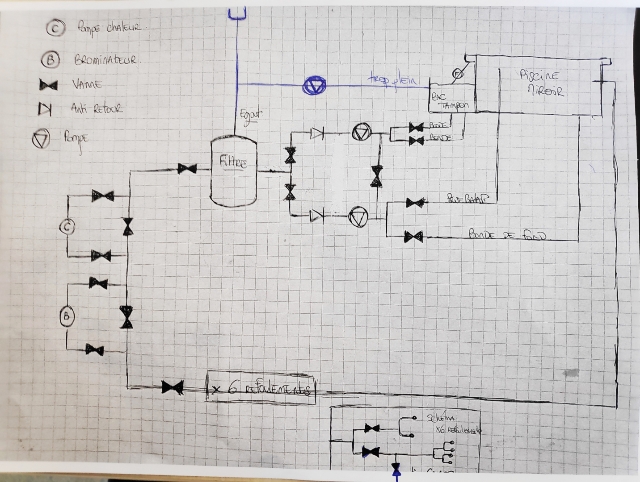 C Pompe chaleur
B Brominateur
Vanne
Anti Retour
Pompe
Egout
trop plein
Bac
Tampon
Piscine
Miroir
Filtre
Bonde
Bonde
Bonde de Fond
C
B
x 6 refoulements
Schéma
x6 refoulements